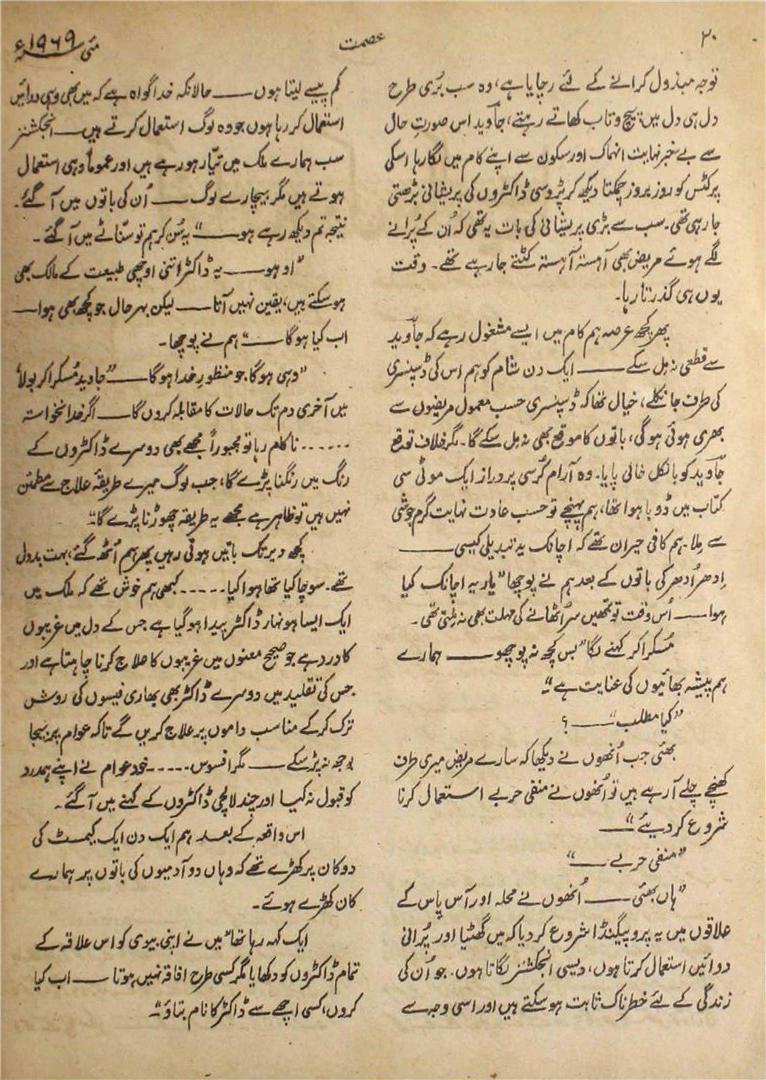 ۲۰
عصمت
مئی ۱۹۶۹ء
توجہ مبذول کرانے کے لئے رچایا ہے، وہ سب بُری طرح
دل ہی دل میں پیچ و تاب کھاتے رہتے، جاوید اس صورتِ حال
سے بے خبر نہایت انہماک اور سکون سے اپنے کام میں لگا رہا اسکی
پرکٹس کو روز بروز چمکتا دیکھ کر پڑوسی ڈاکٹروں کی پریشانی بڑھتی
جا رہی تھی۔ سب سے بڑی پریشانی کی بات یہ تھی کہ اُن کے پُرانے
لگے ہوئے مریض بھی آہستہ آہستہ کٹتے جا رہے تھے۔ وقت
یوں ہی گذرتا رہا۔
پھر کچھ عرصہ ہم کام میں ایسے مشغول رہے کہ جاوید
سے قطعی نہ مل سکے —— ایک دن شام کو ہم اس کی ڈسپنسری
کی طرف جا نکلے، خیال تھا کہ ڈسپنسری حسب معمول مریضوں سے
بھری ہوئی ہوگی، باتوں کا موقع بھی نہ مل سکے گا۔ مگر خلاف توقع
جاوید کو بالکل خالی پایا۔ وہ آرام کرسی پر دراز ایک موٹی سی
کتاب میں ڈوبا ہوا تھا، ہم پہنچے تو حسب عادت نہایت گرم جوشی
سے ملا۔ ہم کافی حیران تھے کہ اچانک یہ تبدیلی کیسی ——
اِدھر اُدھر کی باتوں کے بعد ہم نے پوچھا "یار یہ اچانک کیا
ہوا —— اُس وقت تو تمھیں سر اُٹھانے کی مہلت بھی نہ ملتی تھی۔
مُسکرا کر کہنے لگا "بس کچھ نہ پوچھو —— ہمارے
ہم پیشہ بھائیوں کی عنایت ہے"۔
"کیا مطلب" — ؟
بھئی جب اُنھوں نے دیکھا کہ سارے مریض میری طرف
کھنچے چلے آ رہے ہیں تو اُنھوں نے منفی حربے استعمال کرنا
شروع کر دیئے" —
"منفی حربے —"
"ہاں بھئی —— اُنھوں نے محلہ اور آس پاس کے
علاقوں میں یہ پروپیگنڈا شروع کر دیا کہ میں گھٹیا اور پُرانی
دوائیں استعمال کرتا ہوں، دیسی انجکشنز لگاتا ہوں۔ جو اُن کی
زندگی کے لئے خطرناک ثابت ہو سکتے ہیں اور اسی وجہ سے
کم پیسے لیتا ہوں —— حالانکہ خدا گواہ ہے کہ میں بھی وہی دوائیں
استعمال کر رہا ہوں جو وہ لوگ استعمال کرتے ہیں — انجکشنز
سب ہمارے ملک میں تیار ہو رہے ہیں اور عموماً وہی استعمال
ہوتے ہیں مگر بیچارے لوگ —— اُن کی باتوں میں آ گئے۔
نتیجہ تم دیکھ رہے ہو ——" یہ سُن کر ہم تو سنّاٹے میں آ گئے۔
"او ہو —— یہ ڈاکٹر اتنی اوچھی طبیعت کے مالک بھی
ہو سکتے ہیں، یقین نہیں آتا —— لیکن بہر حال جو کچھ بھی ہوا —
اب کیا ہوگا —" ہم نے پوچھا۔
"وہی ہوگا جو منظورِ خدا ہوگا ——" جاوید مُسکرا کر بولا
میں آخری دم تک حالات کا مقابلہ کروں گا — اگر خدانخواستہ
...... ناکام رہا تو مجبوراً مجھے بھی دوسرے ڈاکٹروں کے
رنگ میں رنگنا پڑے گا، جب لوگ میرے طریقۂ علاج سے مطمئن
نہیں ہیں تو ظاہر ہے مجھے یہ طریقہ چھوڑنا پڑے گا"۔
کچھ دیر تک باتیں ہوتی رہیں پھر ہم اُٹھ گئے، بہت بد دل
تھے۔ سوچا کیا تھا ہوا کیا..... کبھی ہم خوش تھے کہ ملک میں
ایک ایسا ہونہار ڈاکٹر پیدا ہو گیا ہے جس کے دل میں غریبوں
کا درد ہے جو صحیح معنوں میں غریبوں کا علاج کرنا چاہتا ہے اور
جس کی تقلید میں دوسرے ڈاکٹر بھی بھاری فیسوں کی روش
ترک کر کے مناسب داموں پر علاج کریں گے تاکہ عوام پر بیجا
بوجھ نہ پڑ سکے —— مگر افسوس..... خود عوام نے اپنے ہمدرد
کو قبول نہ کیا اور چند لالچی ڈاکٹروں کے کہنے میں آ گئے۔
اس واقعہ کے بعد ہم ایک دن ایک کیمسٹ کی
دوکان پر کھڑے تھے کہ وہاں دو آدمیوں کی باتوں پر ہمارے
کان کھڑے ہوئے۔
ایک کہہ رہا تھا "میں نے اپنی بیوی کو اس علاقہ کے
تمام ڈاکٹروں کو دکھایا مگر کسی طرح افاقہ نہیں ہوتا —— اب کیا
کروں، کسی اچھے سے ڈاکٹر کا نام بتاؤ"۔